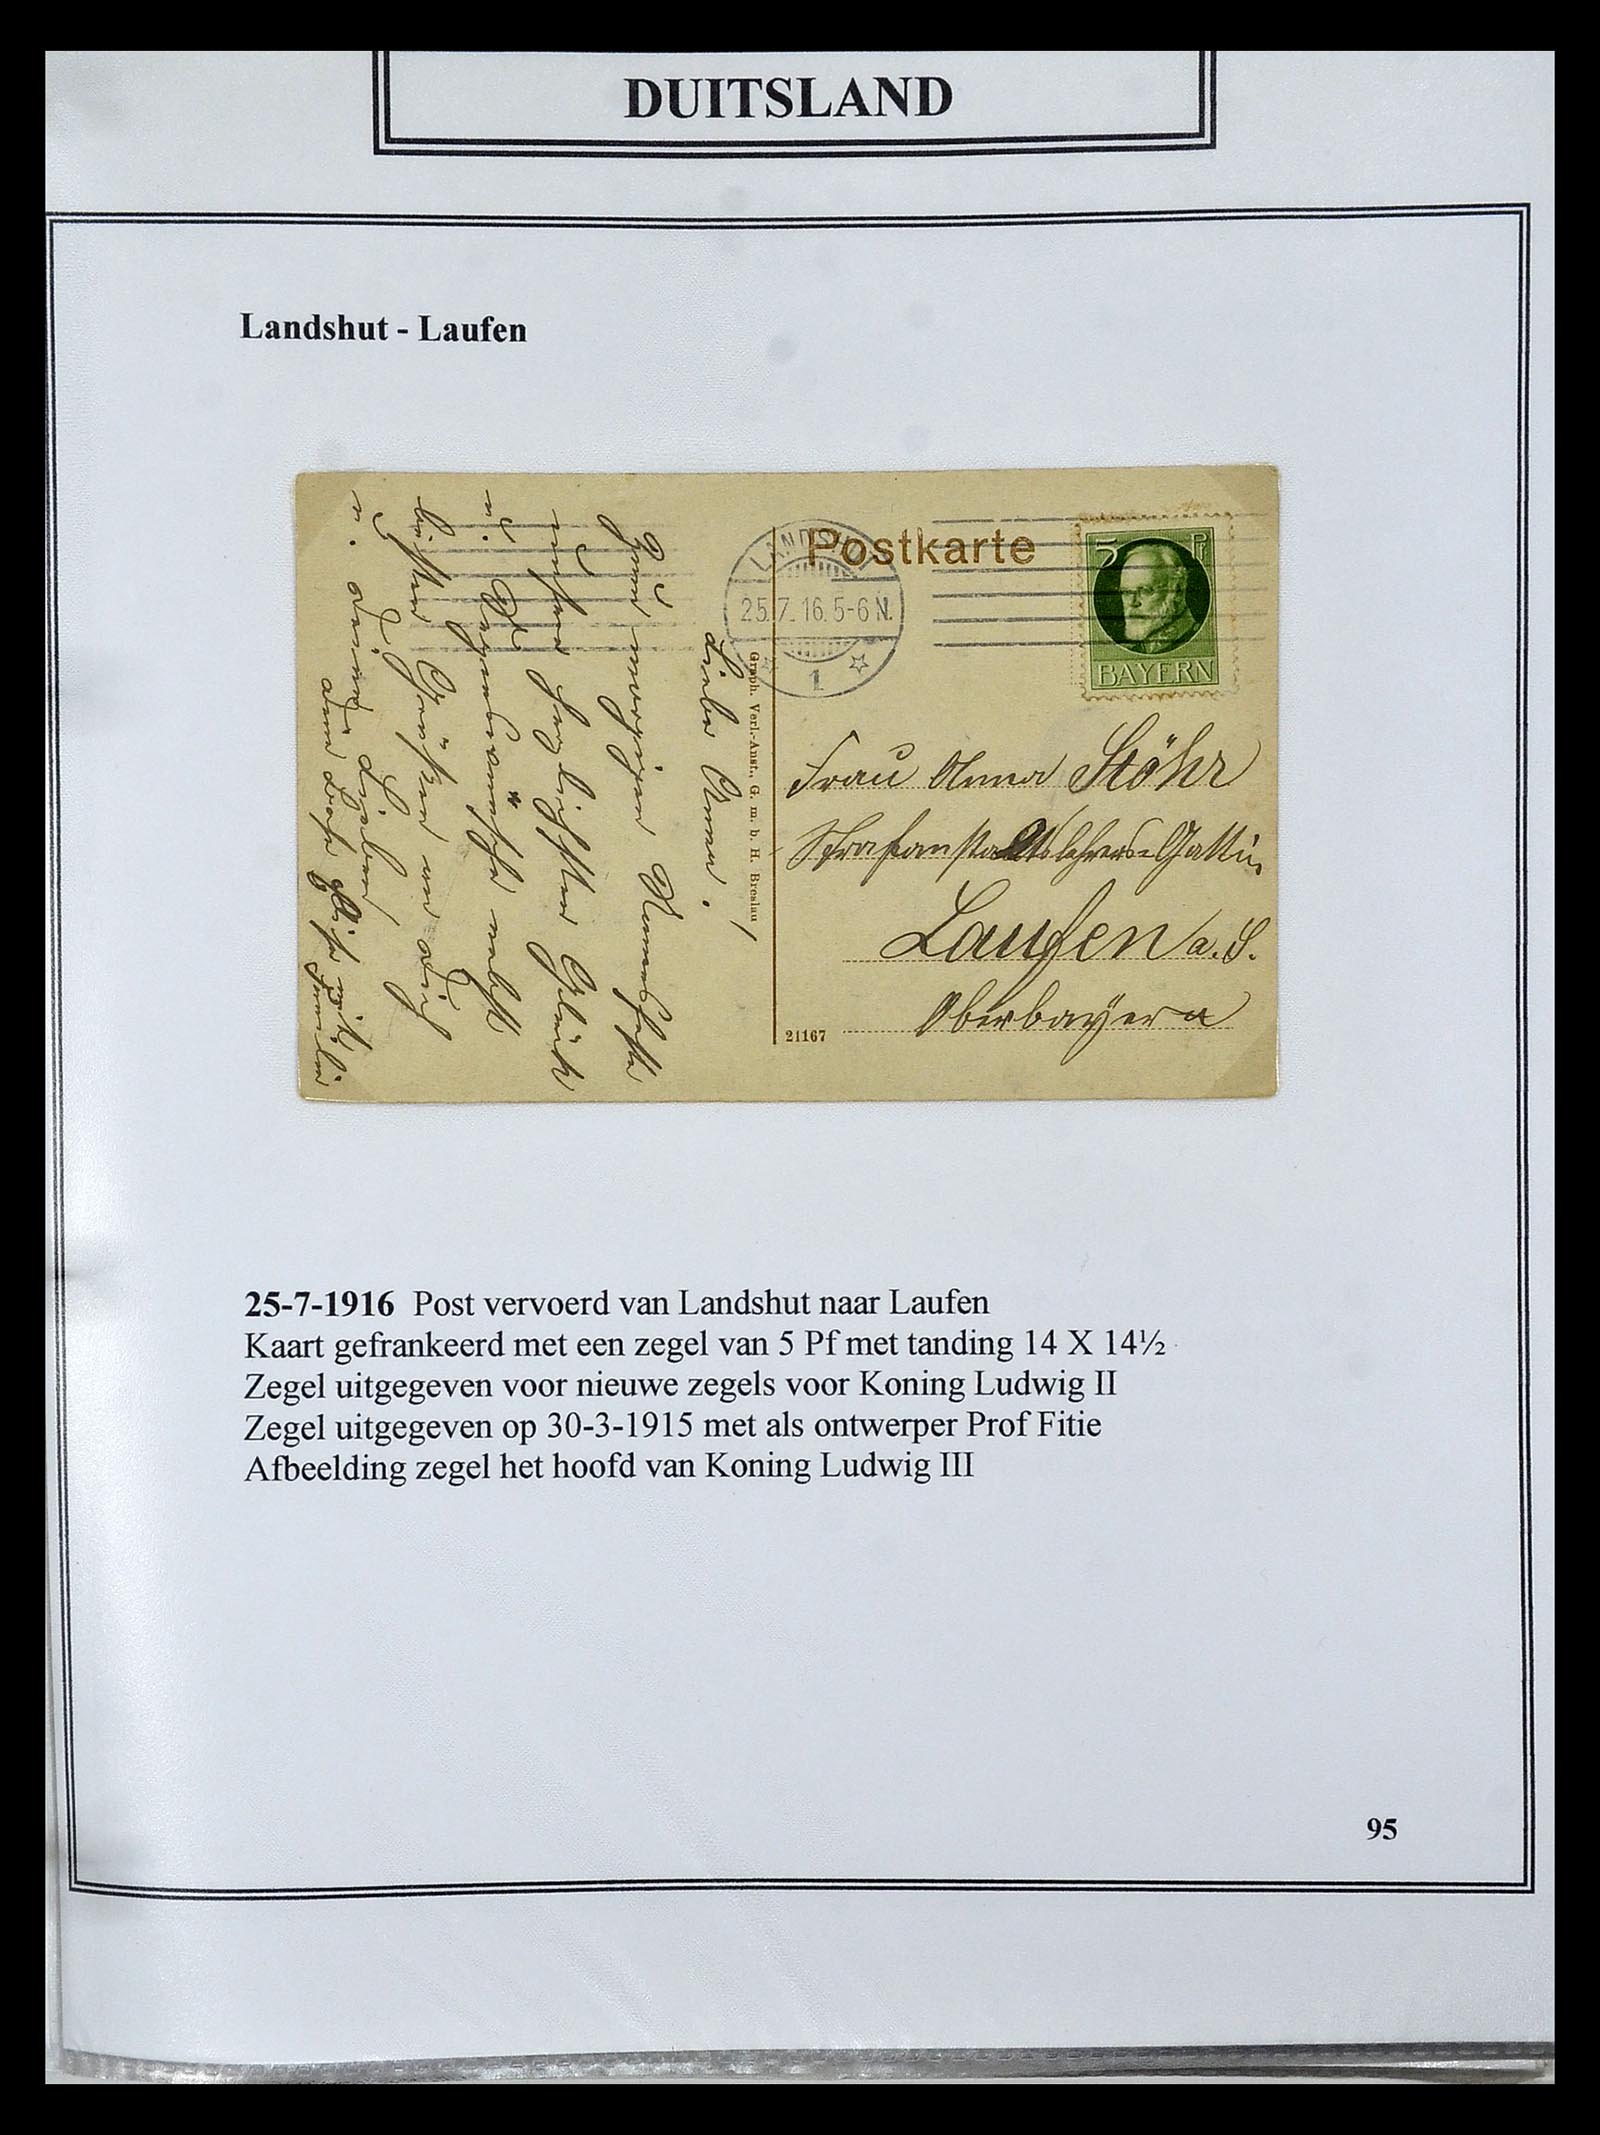 DUITSLAND
Landshut - Laufen
Postkarte
LANDSHUT
25.7.16.5-6 N.
1
5 Pf
BAYERN
Graph. Verl.-Anst., G. m. b. H. Breslau
21167
Frau Anna Stöhr
Strafanstaltslehrers-Gattin
Laufen a. S.
Oberbayern
Liebe Anna.
Zum morgigen Namensfeste
unsere herzlichsten Glück
u.
besten Grüßen an Dich
u. deine Lieben
25-7-1916 Post vervoerd van Landshut naar Laufen
Kaart gefrankeerd met een zegel van 5 Pf met tanding 14 X 14½
Zegel uitgegeven voor nieuwe zegels voor Koning Ludwig II
Zegel uitgegeven op 30-3-1915 met als ontwerper Prof Fitie
Afbeelding zegel het hoofd van Koning Ludwig III
95